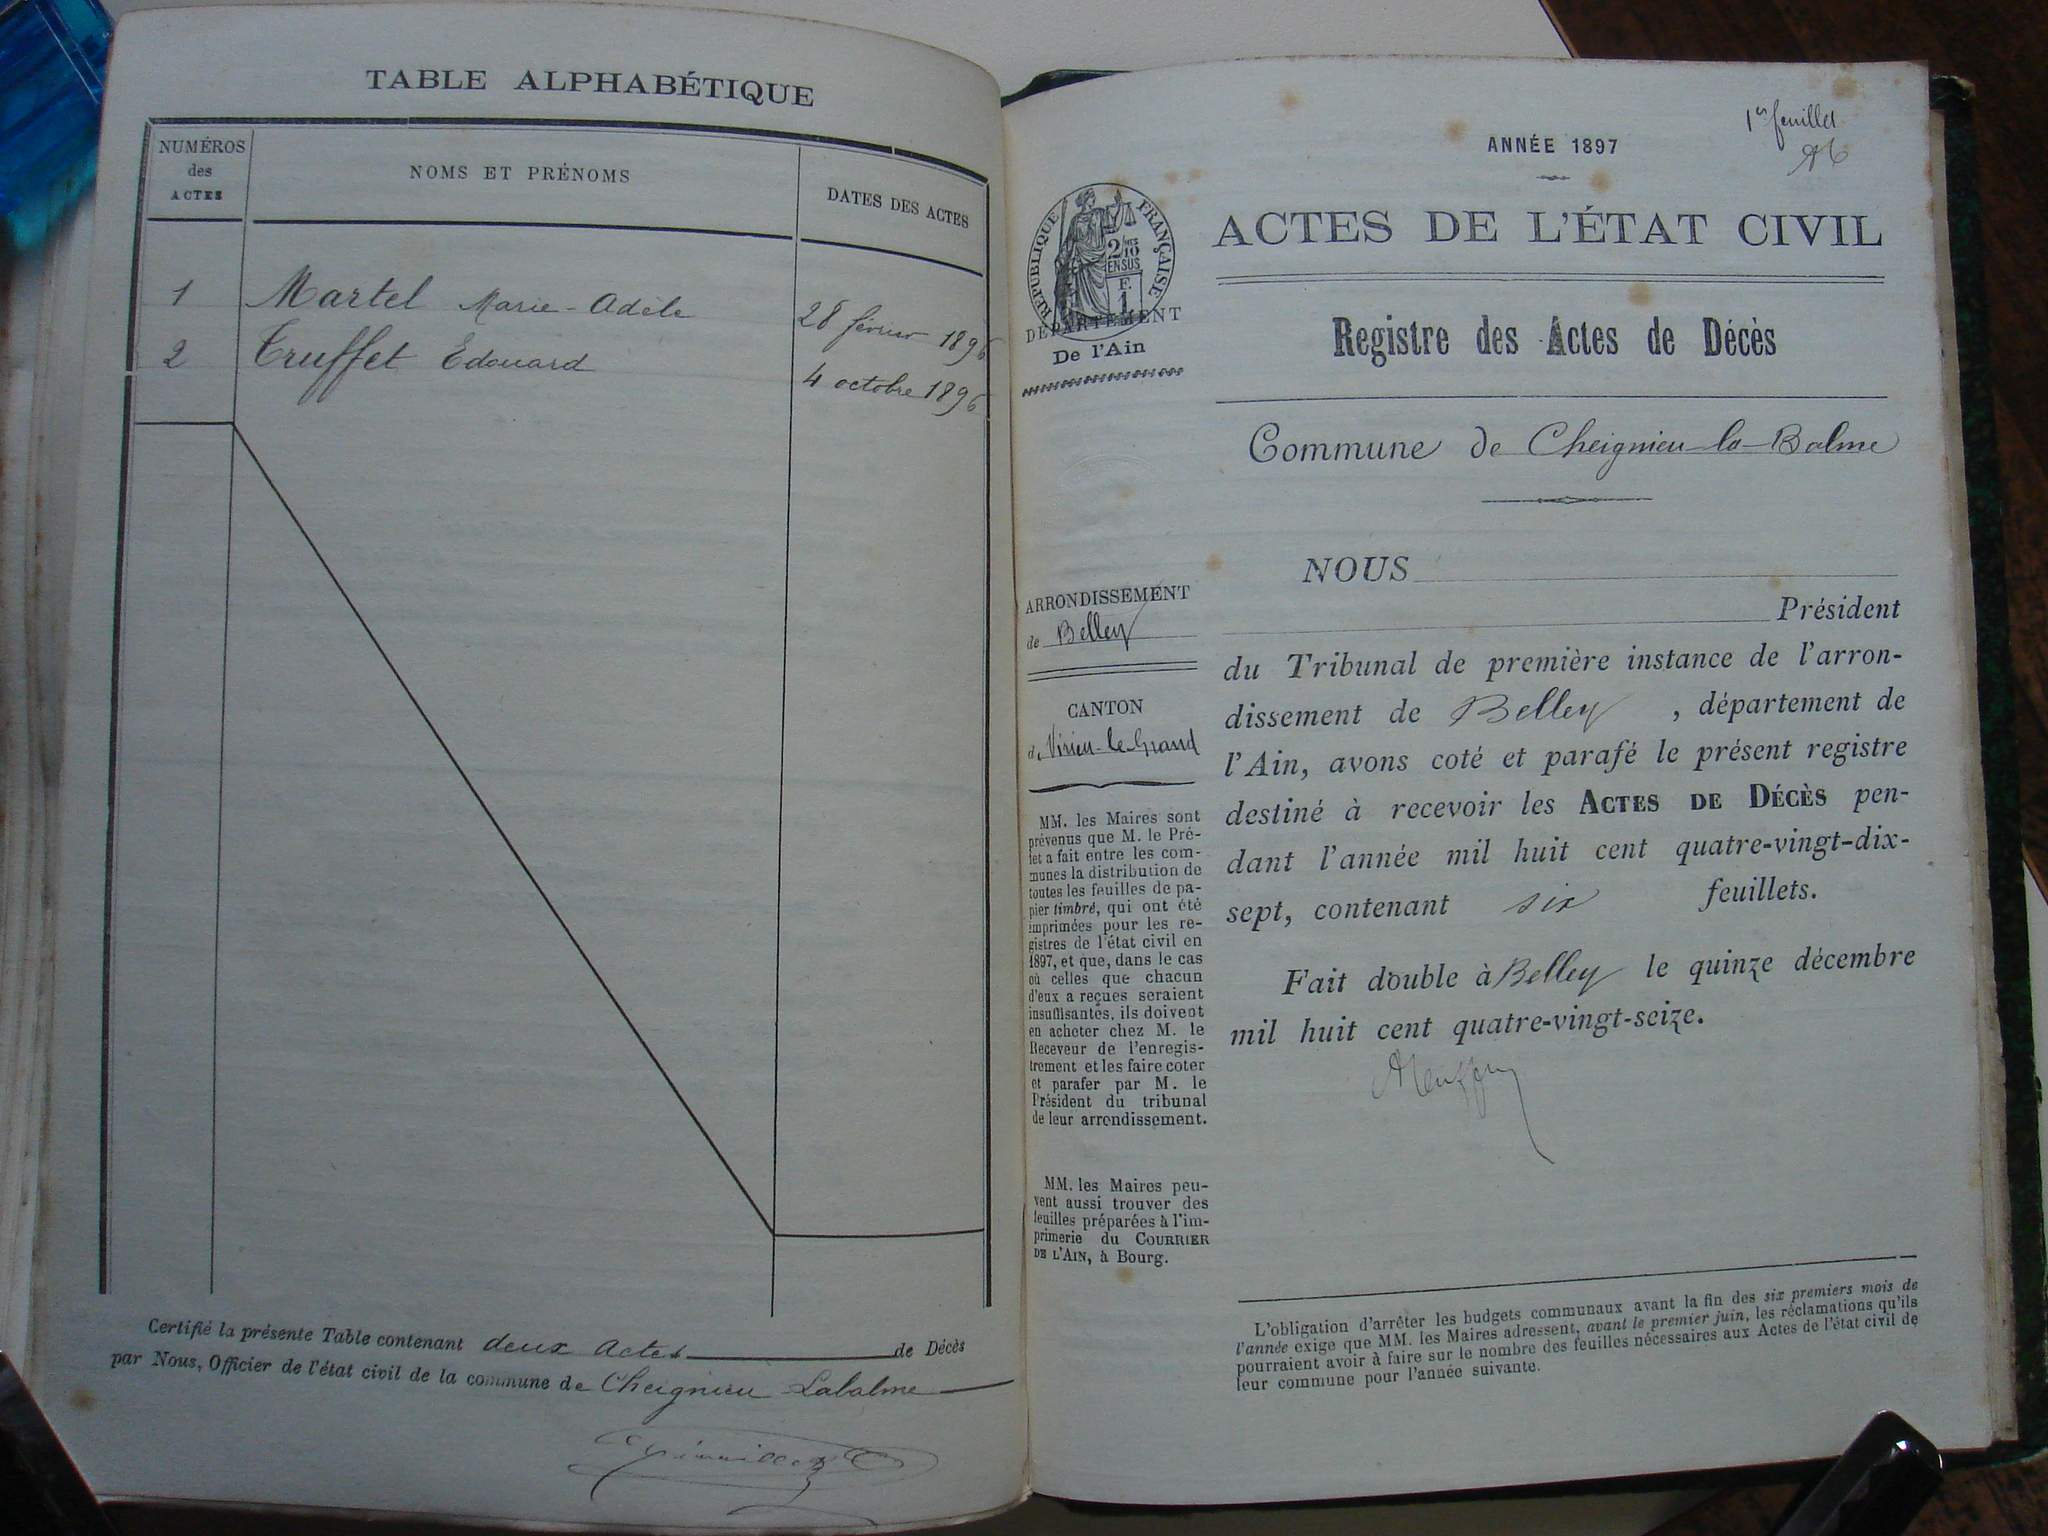 TABLE ALPHABÉTIQUE
NUMÉROS
des
ACTES
NOMS ET PRÉNOMS
DATES DES ACTES
1 Martel Marie-Adèle 28 février 1896
2 Truffet Edouard 4 octobre 1896
Certifié la présente Table contenant deux actes de Décès
par Nous, Officier de l'état civil de la commune de Cheignieu Labalme
1er feuillet
ANNÉE 1897
RÉPUBLIQUE FRANÇAISE
2/10
EN SUS
F.
1
DÉPARTEMENT
De l'Ain
ACTES DE L'ÉTAT CIVIL
Registre des Actes de Décès
Commune de Cheignieu-la-Balme
ARRONDISSEMENT
de Belley
CANTON
de Virieu-le-Grand
MM. les Maires sont
prévenus que M. le Pré-
fet a fait entre les com-
munes la distribution de
toutes les feuilles de pa-
pier timbré, qui ont été
imprimées pour les re-
gistres de l'état civil en
1897, et que, dans le cas
où celles que chacun
d'eux a reçues seraient
insuffisantes, ils doivent
en acheter chez M. le
Receveur de l'enregis-
trement et les faire coter
et parafer par M. le
Président du tribunal
de leur arrondissement.
MM. les Maires peu-
vent aussi trouver des
feuilles préparées à l'im-
primerie du COURRIER
DE L'AIN, à Bourg.
NOUS
Président
du Tribunal de première instance de l'arron-
dissement de Belley , département de
l'Ain, avons coté et parafé le présent registre
destiné à recevoir les ACTES DE DÉCÈS pen-
dant l'année mil huit cent quatre-vingt-dix-
sept, contenant six feuillets.
Fait double à Belley le quinze décembre
mil huit cent quatre-vingt-seize.
L'obligation d'arrêter les budgets communaux avant la fin des six premiers mois de
l'année exige que MM. les Maires adressent, avant le premier juin, les réclamations qu'ils
pourraient avoir à faire sur le nombre des feuilles nécessaires aux Actes de l'état civil de
leur commune pour l'année suivante.